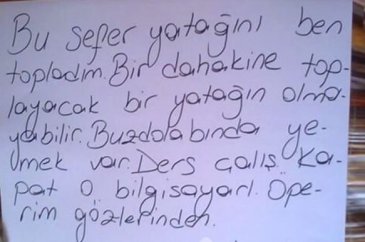 Bu sefer yatağını ben
topladım. Bir dahakine top-
layacak bir yatağın olma-
yabilir. Buzdolabında ye-
mek var. Ders çalış. Ka-
pat o bilgisayarı. Öpe-
rim gözlerinden.